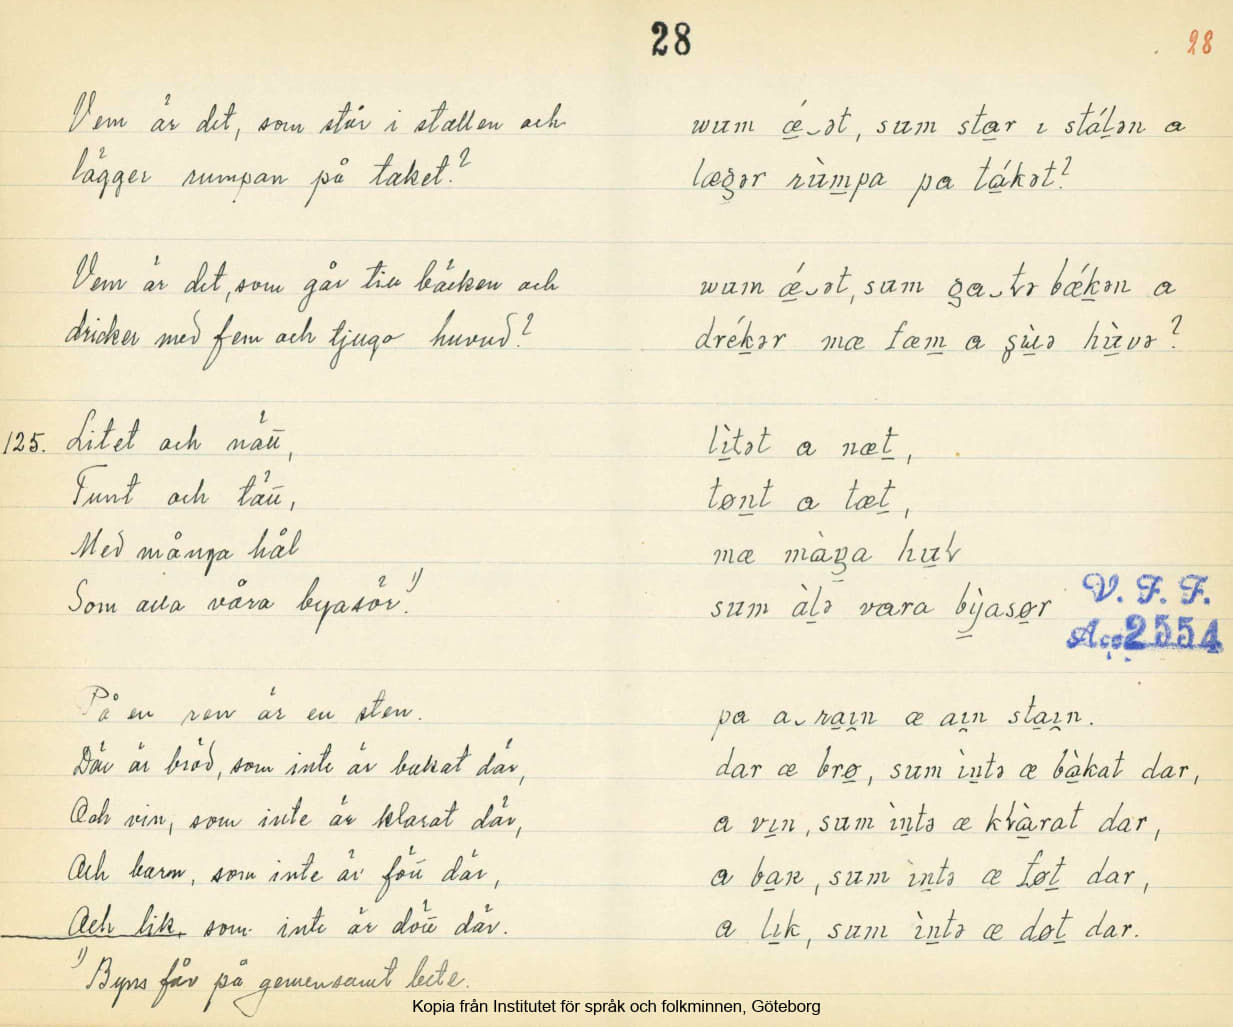 28
28
Vem är det, som står i stallen och
lägger rumpan på taket?
Vem är det, som går till bäcken och
dricker med fem och tjugo huvud?
125. Litet och nätt,
Tunt och tätt,
Med många hål
Som alla våra byasör.¹⁾
På en ren är en sten.
Där är bröd, som inte är bakat där,
Och vin, som inte är klarat där,
Och barn, som inte är fött där,
Och lik, som inte är dött där.
¹⁾ Byns får på gemensamt bete.
wum ǽ‿ət, sum star ɪ stálən a
lægər rùmpa pa tákət?
wum ǽ‿ət, sum ga‿tɽə bǽkən a
drékər mæ fæm a ʂùə hùvə?
lìtət a næt,
tønt a tæt,
mæ màŋa huɽ
sum àlə vara bỳasør
pa a‿raɪn æ aɪn staɪn.
dar æ brø, sum ìntə æ bàkat dar,
a vɪn, sum ìntə æ kɽàrat dar,
a baɴ, sum ìntə æ føt dar,
a lɪk, sum ìntə æ døt dar.
V. F. F.
Acc 2554
Kopia från Institutet för språk och folkminnen, Göteborg